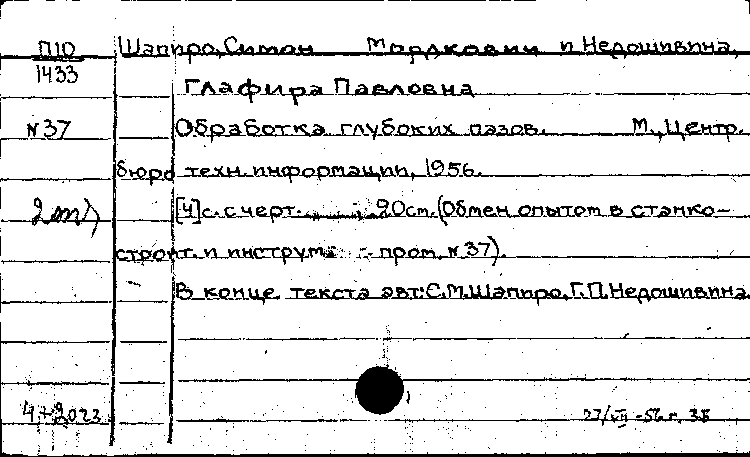 П10 Шапиро, Симон Мордкович и Недошивина,
1433
Глафира Павловна
№37 Обработка глубоких пазов. М., Центр.
бюро техн. информации, 1956.
[4]с. с черт. 20см. (Обмен опытом в станко-
строит. и инструм пром. №37).
В конце текста авт: С.М.Шапиро, Г.П.Недошивина.
27/VII-56г.